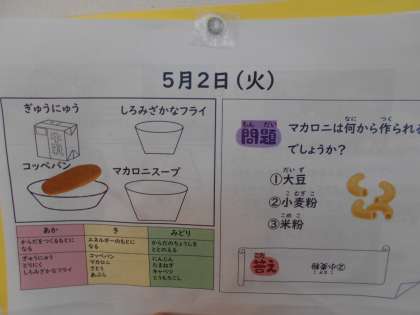 5月2日(火)
ぎゅうにゅう
しろみざかなフライ
コッペパン
マカロニスープ
あか
き
みどり
からだをつくるもとになる
エネルギーのもとになる
からだのちょうしをととのえる
ぎゅうにゅう
とりにく
しろみざかなフライ
コッペパン
マカロニ
さとう
あぶら
にんじん
たまねぎ
キャベツ
とうもろこし
もんだい
問題
なに
つく
マカロニは何から作られる
でしょうか?
だいず
①大豆
こむぎこ
②小麦粉
こめこ
③米粉
答え
②小麦粉